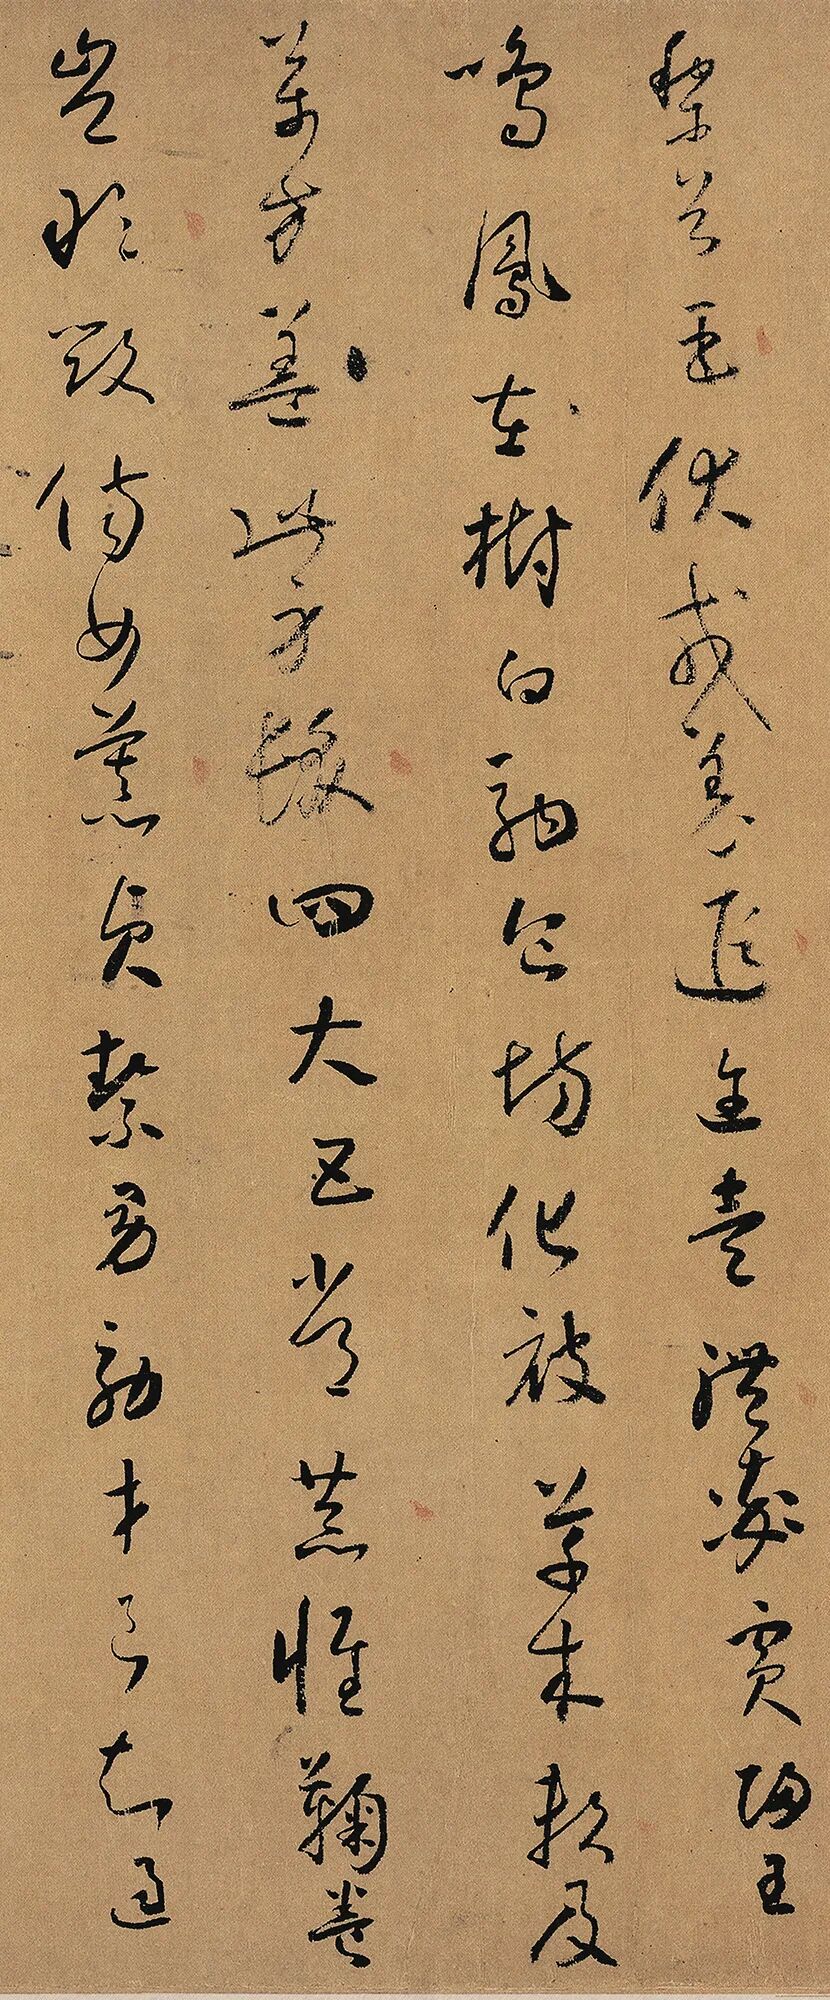 黎首臣伏戎羌遐邇壹體率賓歸王
鳴鳳在樹白駒食場化被草木賴及
萬方蓋此身髮四大五常恭惟鞠養
豈敢毀傷女慕貞絜男効才良知過